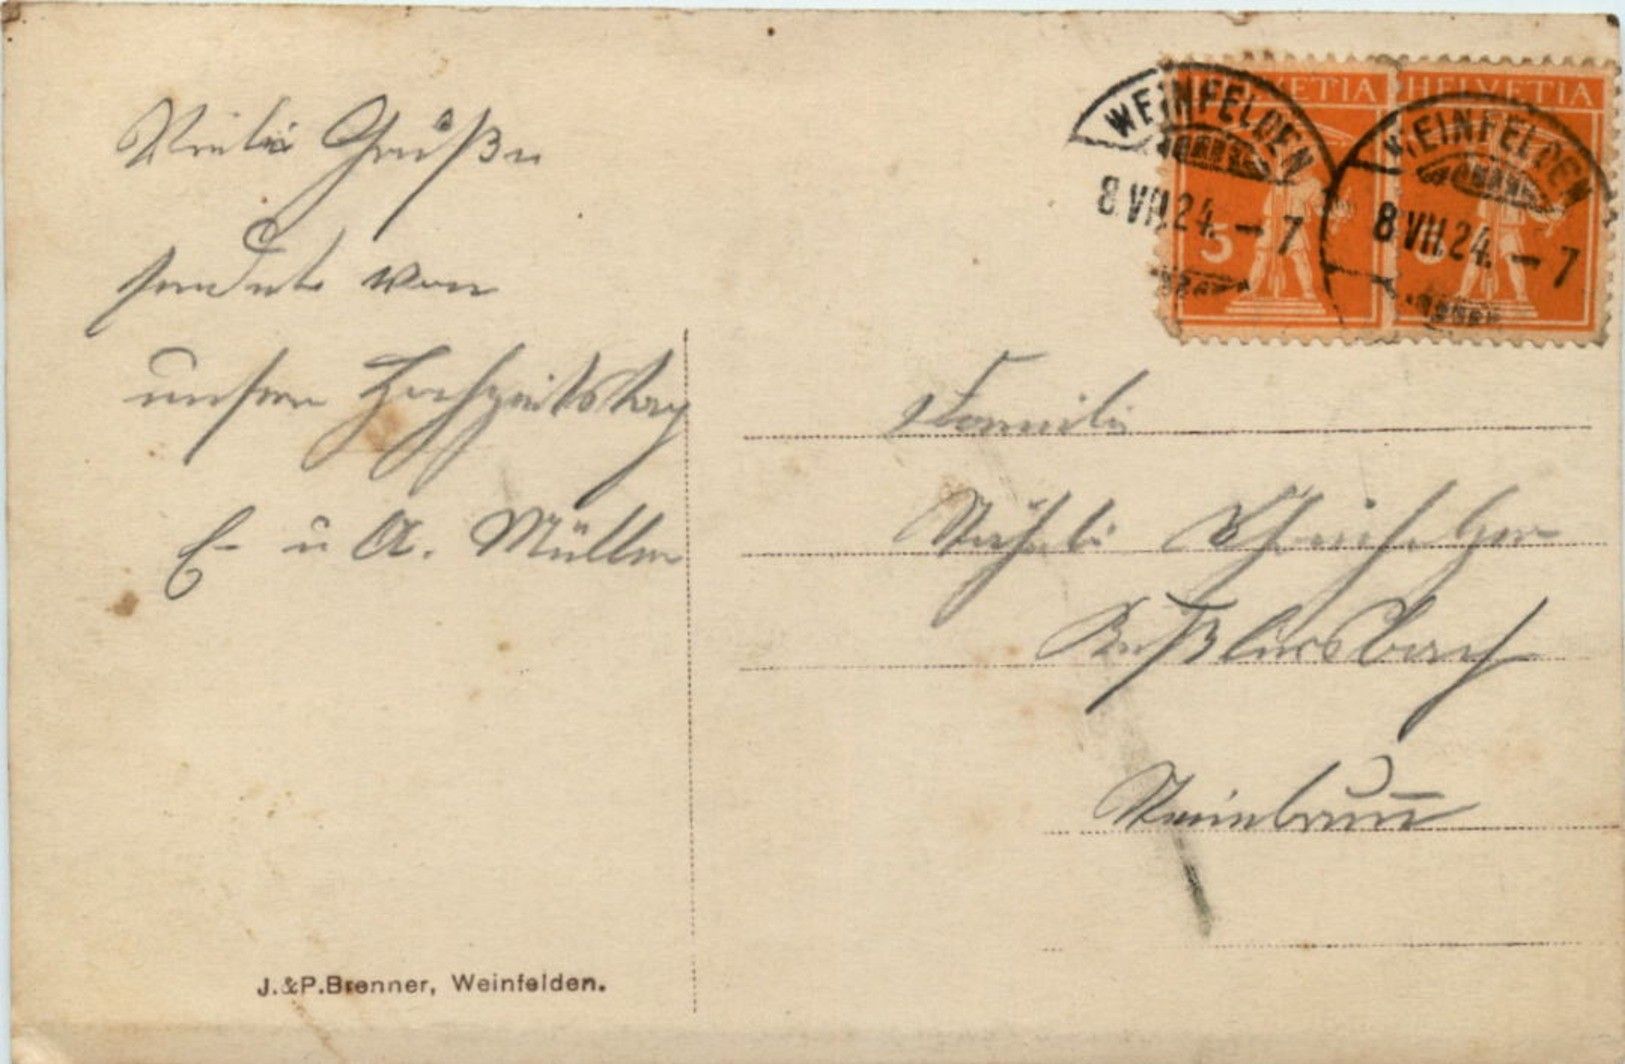 Viele Grüße
sendet von
unserm Hochzeitstag
E. u A. Müller
J.&P.Brenner, Weinfelden.
HELVETIA
HELVETIA
WEINFELDEN
WEINFELDEN
8.VII.24.-7
8.VII.24.-7
5
Familie
Stäheli
Steinebrunn